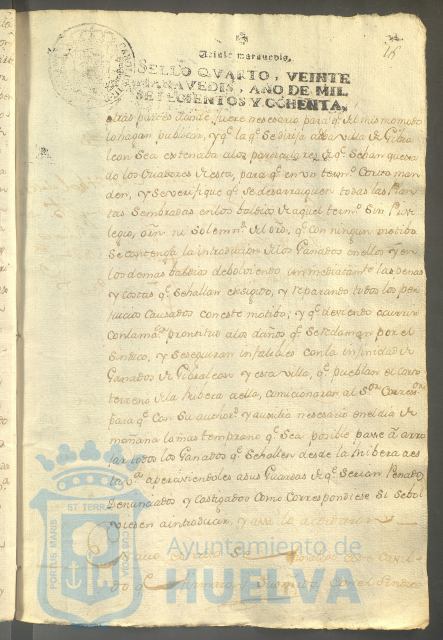 Veinte maravedis.
SELLO QVARTO, VEINTE
MARAVEDIS, AÑO DE MIL
SETECIENTOS Y OCHENTA.
otras partes donde fuere nesesario para qe. del mismo modo
lo hagan publicar, y qe. la qe. se dirija a la villa de Gibra
leon sea extensiva a los particulares de qe. se han quexa
do los Criadores de esta, para qe. en un termo. Corto man
den, y se verifique qe. se desarraiguen todas las Plan
tas Sembradas en los baldios de aquel termo. Sin Privi
legio, qe. con ningun motibo
Se contenga la introducion de los Ganados en ellos y en
los demas baldios debolviendo inmediatamte. las
y costas qe. se hallan exsigido, y reparando todos los per
juicios Causados con este motibo; y qe. deviendo ocurrir
con la maor. prontitud a los daños qe. se reclaman por el
Sindico, y se seguiran infalibles con la infinidad de
Ganados de Gibraleon y esta villa, qe. pueblan el corto
terreno de la Ribera a ella, comicionaran al Sor. Corregor.
para qe. con su autord. y auxilio nesesario en el dia de
mañana lo mas temprano qe. sea posible passe a arro
jar todos los Ganados qe. se hallen desde la Ribera a es
ta va. apersiviendoles a sus Guardas de qe. serian Penados
Denunciados y Castigados como correspondiese si se bol
viesen a introducir, y assi lo acordaron
PORTUS MARIS ET TERRAE CUSTODIA
Ayuntamiento de
HUELVA